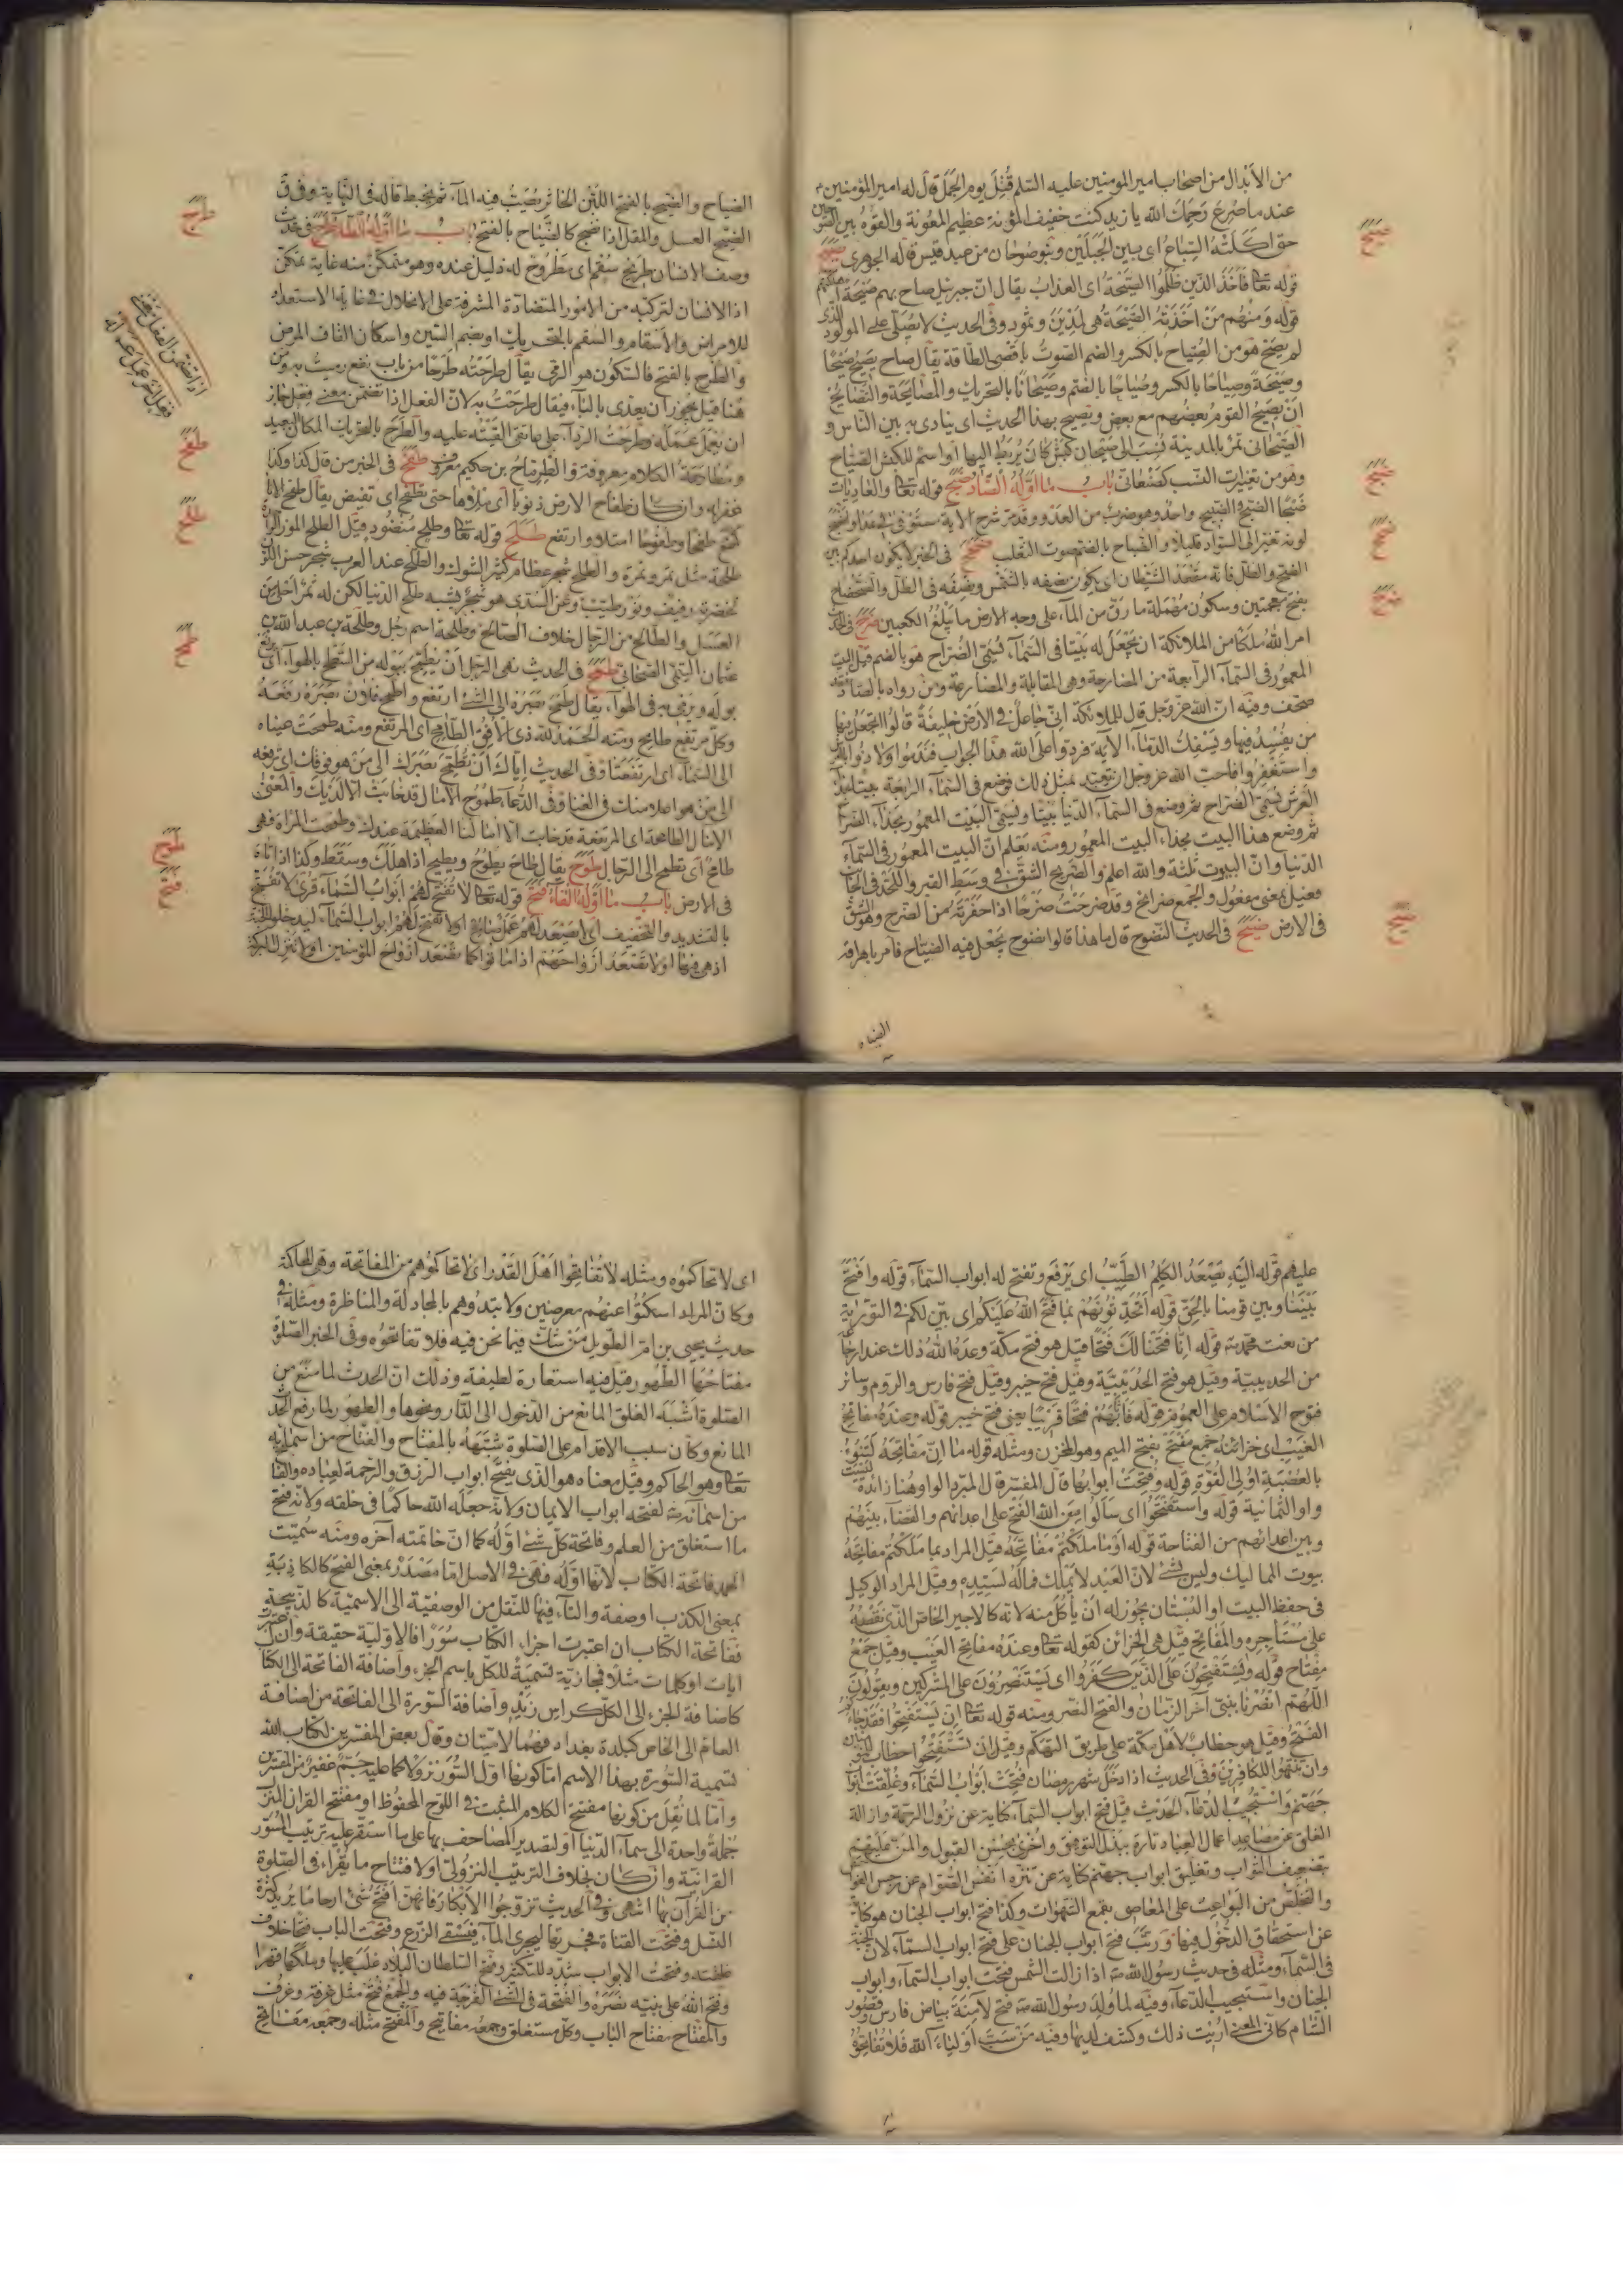 من الأبدال من اصحاب امير المؤمنين عليه السّلم قُتِلَ يوم الجَمَل قال له امير المؤمنين
عند ما صُرِعَ رَحِمَك الله يا زيد كنت خفيف المؤنة عظيم المعُونة
حتى اكلته السِّباع اى بين الجَبَلَين وبنو صُوحان من عبد قيس قاله الجوهرى صيح
قوله تعا فَاَخَذَ الَّذين ظَلَمُوا الصَّيْحَةُ اى العذاب يقال انّ جبرئيل صاح بهم صَيْحَة
قوله وَمِنْهُم مَنْ اَخَذَتْهُ الصَّيْحَةُ هى لمدين وثمود وفى الحديث لا يُصَلّى على المولود الذى
لم يصح هو من الصِّياح بالكسر والضم الصوتُ باقصى الطاقة يقال صاح يصيح صَيْحًا
وصَيْحَةً وصِياحًا بالكسر وصُياحًا بالضم وصَيَحانًا بالتحريك والمصايحة والتصايح
انْ يَصيحَ القومُ بعضُهم مع بعض ويصيح بهذا الحديث اى ينادى به بين الناس و
الصَّيْحانى تمرٌ بالمدينة نُسِبَ الى صَيْحان كَبْشٌ كان يُربَطُ اليها او اسم للكبش الصيّاح
وهو من تغييرات النّسب كصَنْعانىّ باب ما اوّله الضّاد ضبح قوله تعا والعاديات
ضَبْحًا الضبح والضبيح واحد وهو ضرب من العَدْو وقد مرّ شرح الاية مستوفى فى عدا
لونه تغيّر الى السّواد قليلا والضُّباح بالضم صوت الثعلب ضحح فى الخبر لا يكون احدكم بين
الضّح والظل فانّه مَقْعَدُ الشّيْطان اى يكون نصفه بالشمس ونصفه فى الظل والضحضاح
بفتح معجمتين وسكون مُهْمَلة ما رَقّ من المآء على وجه الارض ما يَبْلُغُ الكعبين ضرح فى الحديث
امر اللهُ ملكًا من الملائكة ان يَجْعَلَ له بَيْتًا فى السّمآء يُسَمّى الضُّراح هو بالضم قيل البيت
المعمُور فى السّمآء الرّابعة من المضارحة وهى المقابلة والمضارعة ومَنْ رواه بالصاد فقد
صحّف وفيه انّ الله عزّ وجل قال للملائكة اِنّى جاعِلٌ فِى الاَرْضِ خَليفَةً قالُوا اَتَجْعَلُ فيها
من يُفْسِدُ فيها ويَسْفِكُ الدّمآء الاية فردّوا على الله هذا الجواب فنَدِمُوا ولاذوا بالعرش
واستغفروا فاحبّ الله عزّ وجل ان يُتَعَبّد بمثل ذلك فوضع فى السّمآء الرابعة بيتا بحذآء
العَرْش يُسَمّى الضُّراح ثمّ وضع فى السّمآء الدّنيا بيتًا ويُسَمّى البَيْت المعمُور بحذآء الضراح
ثم وضع هذا البيت بحذآء البيت المعمُور ومنه يَعْلَم انّ البيت المعمُور فى السّمآء
الدّنيا وانّ البيُوت ثلثة والله اعلم والضّريح الشّقّ فى وَسَطِ القبر واللّحْد فى الجانب
فعيل بمعنى مفعُول والجمع ضرائح وقد ضرحتُ ضرحًا اذا حفرته من الضّرح وهو الشق
فى الارض ضيح فى الحديث النّضوح قال ما هذا قالوا نضوح يُجْعَل فيه الضّيّاح فامر باهراقه
الضياح
صيح
ضبح
ضحح
ضرح
ضيح
الضياح والضَّيْح بالفتح اللبَنُ الخاثر يُصَبّ فيه المآء ثم يُخلط قاله فى النّهاية وفى ق
الضَّيْح العسل والمُقل اذا نضج كالضَّياح بالفتح باب ما اوّله الطّاء طرح فى حديث
وصف الانسان طريح سُقم اى مَطْرُوح له ذليل عنده وهو متمكن منه غاية تمكن
اذ الانسان لتركّبه من الامور المتضادة المشرفة على الانحلال فى غاية الاستعداد
للامراض والأسقام والسقم بالتحريك او بضم السّين واسكان القاف المرض
والطّرح بالفتح فالسكون هو الرَّمى يقال طَرَحْتُه طَرْحًا من باب نفع رميت به ومن
هنا قيل يجُوز ان يعدّى بالبآء فيقال طرحتُ به لانّ الفعل اذا تضمّن معنى فعل جاز
ان يُعْمَلَ عَمَلَه وطرحتُ الرّدآء على عاتقى القَيْتُه عليه والطّرَح بالتحريك المكان البعيد
ومُطارحة الكلام معروفة والطّرِمّاح بن حكيم معروف طفح فى الخبر من قال كذا وكذا
غفر له وان كان طفاح الارض ذنوبا اى ملؤها حتى تطفح اى تفيض يقال طفح الانا
كمنع طفحًا وطفوحًا امتلا وارتفع طلح قوله تعا وطَلْحٍ مَنْضُودٍ قيل الطلح الموز الواحد
طلحة مثل تمر وتمرة والطلح شجر عظام كثير الشوك والطلح عند العرب شجر حسن اللّون
لخضرته رفيف ونَوْر طيّب وعن السُّدى هو شجر يُشبه طلح الدنيا لكن له ثمرٌ احلى من
العسل والطالح من الرّجال خلاف الصّالح وطلحة اسم رجل وطلحة بن عبد الله بن
عثمان التيمى الصّحابى طمح فى الحديث نهى الرّجل اَنْ يُطمِحَ ببَوْله من السّطح بالهوآء اى
بوله ويرمى به فى الهوآء يقال طَمَحَ بَصَرُه الى الشّئ ارتفع واطمح فلانٌ بَصَرَهُ رَفَعَهُ
وكلّ مرتفع طامح ومنه الحمد لله ذى الاُفُق الطّامِح اى المرتفع ومنه طمحت عيناه
الى السّمآء اى ارتفعتا وفى الحديث ايّاك اَنْ تُطْمِحَ بَصَرَك الى مَنْ هو فوقك اى ترفعه
الى من هو اعلا منك فى الغنا وفى الدّعآء طمُوح الآمال قد خابَتْ الّا لَدَيْك والمَعْنى
الآمال الطامحة اى المرتفعة قد خابت الا امالنا العظيمة عندك وطمحت المرأة فهى
طامح اى تطمح الى الرّجال طوح يقال طاح يطُوحُ ويطيح اذا هلك وسَقَطَ وكذا اذا تاه
فى الارض باب ما اوّله الفاء فتح قوله تعا لا تُفَتَّحُ لَهُمْ اَبوابُ السَّمآء قرئ لا تفتح
بالتشديد والتخفيف اى لا يَصْعَدُ لهم عمل صالح او لا تُفتح لهم ابواب السّمآء ليدخلوا الجنة
اذ هى فيها او لا تَصْعَدُ ارواحهم اذا ماتوا كما تصْعَدُ ارواح المؤمنين او لا تنزل البركة
طرح
اذا تضمن الفعل معنى
فعل آخر عمل عمله
طفح
طلح
طمح
طوح
فتح
عليهم قوله اِلَيْهِ يَصْعَدُ الكَلِمُ الطَّيِّبُ اى يُرْفَع وتفتح له ابواب السّمآء قوله وافتح
بَيْنَنا وبين قومنا بِالْحَقِّ قوله اَتُحَدِّثُونَهُمْ بِما فَتَحَ اللهُ عَلَيْكُمْ اى بيّن لكم فى التّورية
من نعت محمّد ص قوله اِنّا فَتَحْنا لَكَ فَتْحًا قيل هو فتح مكّة وعدهُ اللهُ ذلك عند ارجاعه
من الحديبيّة وقيل هو فتح الحُدَيْبيّة وقيل فتح خيبر وقيل فتح فارس والرّوم وسائر
فتوح الاسلام على العموم قوله فَاَثابَهُمْ فَتْحًا قَريبًا يعنى فتح خيبر قوله وعِنْدَهُ مَفاتِحُ
الغَيْبِ اى خزائنه جَمْع مَفْتَح بفتح الميم وهو المخزن ومثله قوله ما اِنَّ مَفاتِحَهُ لَتَنُوءُ
بِالْعُصْبَةِ اُولِى الْقُوَّةِ قوله وَفُتِحَتْ ابوابها قال المفسّر قال المبرّد الواو هنا زائدة
واو الثّمانية قوله واستفتَحُوا اى سَألُوا من الله الفَتْحَ على اعدائهم والقضآء بينهم
وبين اعدائهم من الفتاحة قوله اَوْ ما مَلَكْتُم مَفاتِحَهُ قيل المراد بما مَلَكْتُم مفاتِحَهُ
بيوت المماليك وليس بشئ لانّ العبد لا يملك فماله لسيّده وقيل المراد الوكيل
فى حفظ البيت او البُسْتان يجُوز له اَنْ يأكُلَ منه لانّه كالاجير الخاص الذّى نفقته
على مُسْتَأجِرِه والمَفاتِح قيل هى الخزائن كقوله تعا وعندَهُ مفاتِحُ الغَيْب وقيل جَمْعُ
مفتاح قوله ويَسْتَفْتِحُونَ عَلَى الَّذينَ كَفَرُوا اى يَسْتَنْصِرُونَ على المشركين ويقولُونَ
اللّهُمّ انْصُرْنا بنبىّ آخر الزّمان والفتح النّصر ومنه قوله تعا اِنْ تَسْتَفْتِحُوا فَقَدْ جاءَكُمُ
الفَتْحُ وقيل هو خِطاب لاهل مكّة على طريق التهكّم وقيل ان تَسْتَفْتِحُوا خطاب للمؤمنين
وان تَنْتَهُوا للكافرين وفى الحديث اذا دخل شهر رمضان فُتِحَتْ اَبوابُ السّمآء وغُلِقَتْ ابواب
جهنّم واستُجيبَ الدّعآء الحديث قيل فتح ابواب السّمآء كناية عن نزول الرّحمة وازالة
الغلق عن مصاعد اعمال العباد تارة ببذل التوفيق واخرى بحسن القبول والمنّ عليهم
بتضعيف الثواب وتغليق ابواب جهنّم كناية عن تنزّه انفس الصّوّام عن رجس الفواحش
والتخلّص من البواعث على المعاصى بقمع الشّهوات وكذا فتح ابواب الجنان هو كناية
عن استحقاق الدّخُول فيها ورتّب فتح ابواب الجنان على فتح ابواب السّمآء لانّ الجنّة
فى السّمآء ومثله فى حديث رسول الله ص اذا زالت الشّمس فتحت ابواب السّمآء وابواب
الجنان واستجيب الدّعآء وفيه لما وُلِدَ رسول الله ص فُتح لآمِنَة بياض فارس وقصُور
الشّام كانّ المعنى اُريَت ذلك وكشف لديها وفيه مَنْ سَبَّ اَوْلِيآءَ اللهِ فَلا تُفاتِحُوهُ
اى لا تحاكموُه ومثله لا تُفاتِحُوا اَهْلَ القَدَر اى لا تحاكموُهم من المفاتحة وهى المحاكمة
وكانّ المراد اسكتُوا عنهُم معرضين ولا تبتدُوهم بالمجادلة والمناظرة ومثله فى
حديث يحيى بن امّ الطّويل مَنْ شكّ فيما نحن فيه فلا تفاتحُوه وفى الخبر الصّلوة
مفتاحُهَا الطّهُور قيل فيه استعارة لطيفة وذلك انّ الحدث لما منع من
الصّلوة اشبه الغلق المانع من الدّخول الى الدّار ونحوها والطهور لما رفع الحدث
المانع وكان سبب الاقدام على الصّلوة شبّهه بالمفتاح والفتّاح من اسمآئه
تعا وهو الحاكم وقيل معناه هو الذى يفتح ابواب الرّزق والرّحمة لعباده والفاتح
من اسمآئه ص لفتحه ابواب الايمان ولانّه جعله الله حاكمًا فى خلقه ولانّه فتح
ما استغلق من العلم وفاتحة كلّ شئ اوّله كما انّ خاتمته آخره ومنه سُمّيت
الحمد فاتحة الكتاب لانّها اوّله فهى فى الاصل امّا مصدر بمعنى الفتح كالكاذبة
بمعنى الكذب او صفة والتآء فيها للنقل من الوصفيّة الى الاسميّة كالذّبيحة
ففاتحة الكتاب ان اعتبرت اجزاء الكتاب سُوَرًا فالاوّلية حقيقة وان اعتبرت
ايات او كلمات مثلا فمجازيّة تسميةً للكلّ باسم الجزء واضافة الفاتحة الى الكتاب
كاضافة الجزء الى الكلّ كراس زيد واضافة السّورة الى الفاتحة من اضافة
العام الى الخاص كبلدة بغداد فهُما لاميّتان وقال بعض المفسّرين لكتاب الله
تسمية السّورة بهذا الاسم امّا كونها اوّل السُّوَر نزولًا كما عليه جَمٌّ غفيرٌ من المفسّرين
وامّا لما نُقِلَ من كونها مفتتح الكلام المثبت فى اللّوح المحفوظ او مفتتح القرآن المنزل
جملةً واحدة الى سمآء الدّنيا او لتصدير المصاحف بها على ما استقر عليه ترتيب السُّوَر
القرآنيّة وان كان بخلاف الترتيب النّزولى او لافتتاح ما يُقرأ فى الصّلوة
من القرآن بها انتهى وفى الحديث تزوّجُوا الاَبكار فانّهنّ اَفتَحُ شئٍ ارحامًا يُريدُ كثرة
النّسل وفتحتُ القناة فجّرتها ليجرى المآء فيسقى الزّرع وفتحت الباب فتحًا خلاف
غلقته وفتحتُ الابواب شدّد للتكثير وفتح السّلطان البلاد غلَبَ عليها وملكها قهرا
وفتح الله على نبيّه نَصَرَهُ والفتحة فى الشّئ الفُرجة فيه والجَمْعُ فُتَح مثل غرفة وغرف
والمفتاح مفتاح الباب وكلّ مستغلق وجمعه مفاتيح والمِفتَح مثله وجمعه مَفاتِح